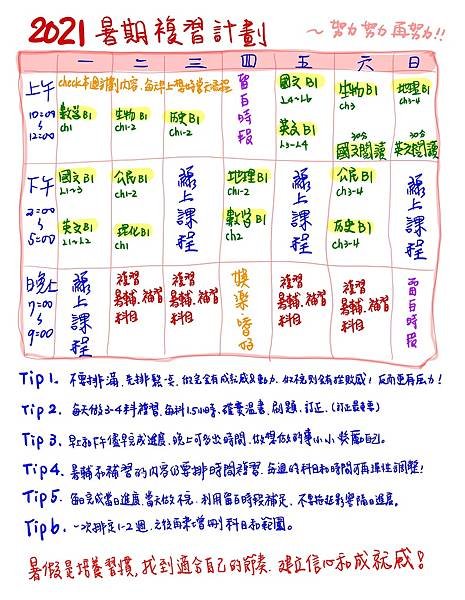 2021 暑期複習計劃 ~努力努力再努力!!
一 二 三 四 五 六 日
上午
10:00
12:00
check本週計劃內容,每天早上想好當天進程
數學B1
ch1
生物B1
ch1-2
歷史B1
ch1-2
留白時段
國文B1
L4~L6
英文B1
L3~L4
生物B1
ch3
30分
國文閱讀
地理B1
ch3-4
30分
英文閱讀
下午
2:00
5:00
國文B1
L1~3
英文B1
L1~L2
公民B1
ch1-2
理化B1
ch1
線上課程
地理B1
ch1-2
數學B1
ch2
線上課程
公民B1
ch3-4
歷史B1
ch3-4
線上課程
晚上
7:00
9:00
線上課程
複習
暑輔.補習
科目
複習
暑輔.補習
科目
娛樂嗜好
複習
暑輔.補習
科目
複習
暑輔.補習
科目
留白時段
Tip 1. 不要排滿,先排鬆一點,做完會有成就感&動力,做不完則會有挫敗感!反而更有壓力!
Tip 2. 每天做3-4科複習,每科1.5小時,確實溫書、刷題、訂正。(訂正最重要)
Tip 3. 早上和下午儘早完成進度,晚上可多出時間,做想做的事小小獎勵自己。
Tip 4. 暑輔和補習的內容仍要排時間複習,每週的科目和時間可再彈性調整!
Tip 5. 每日完成當日進度,當天做不完,利用留白時段補足,不要拖延影響隔日進展。
Tip 6. 一次排定1-2週,之後再來增刪科目和範圍。
暑假是培養習慣,找到適合自己的節奏,建立信心和成就感!